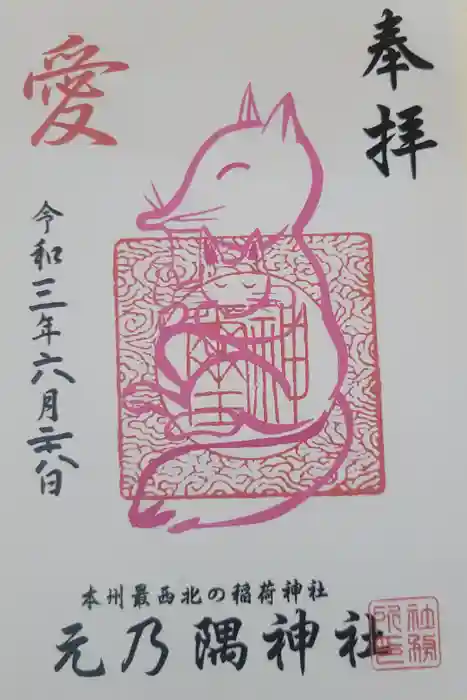 奉拝
愛
令和三年六月二八日
本州最西北の稲荷神社
元乃隅神社
社務所印